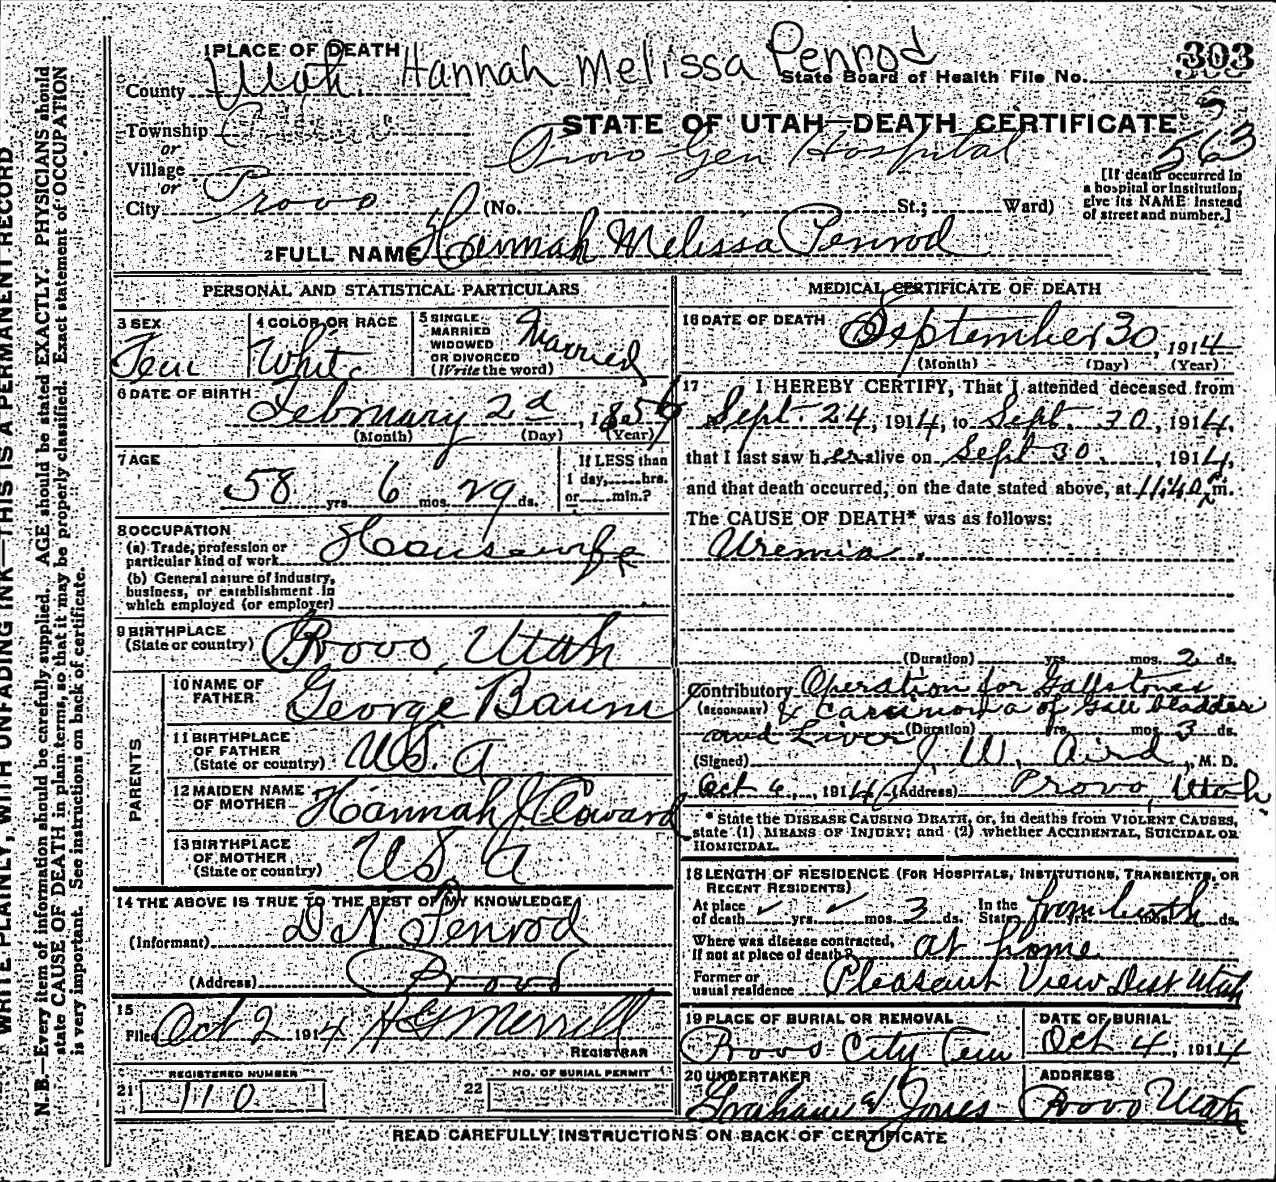 303
1 PLACE OF DEATH
Hannah Melissa Penrod
State Board of Health File No.
County Utah
Township
or
STATE OF UTAH—DEATH CERTIFICATE
563
Village
or
Provo Gen Hospital
[If death occurred in a hospital or institution, give its NAME instead of street and number.]
City Provo (No. St.; Ward)
2 FULL NAME Hannah Melissa Penrod
PERSONAL AND STATISTICAL PARTICULARS
3 SEX Fem
4 COLOR OR RACE White
5 SINGLE, MARRIED WIDOWED OR DIVORCED (Write the word) Married
6 DATE OF BIRTH February 2d, 1856
(Month) (Day) (Year)
7 AGE 58 yrs. 6 mos. 29 ds.
If LESS than 1 day, hrs. or min.?
8 OCCUPATION
(a) Trade, profession or particular kind of work Housewife
(b) General nature of industry, business, or establishment in which employed (or employer)
9 BIRTHPLACE (State or country) Provo, Utah
PARENTS
10 NAME OF FATHER George Baum
11 BIRTHPLACE OF FATHER (State or country) U.S. A
12 MAIDEN NAME OF MOTHER Hannah J. Coward
13 BIRTHPLACE OF MOTHER (State or country) U S A
14 THE ABOVE IS TRUE TO THE BEST OF MY KNOWLEDGE
(Informant) D N Penrod
(Address) Provo
15
Filed Oct 2 1914 H G Merrill
REGISTRAR
REGISTERED NUMBER
21 110
NO. OF BURIAL PERMIT
22
MEDICAL CERTIFICATE OF DEATH
16 DATE OF DEATH September 30, 1914
(Month) (Day) (Year)
17 I HEREBY CERTIFY, That I attended deceased from
Sept 24, 1914, to Sept. 30, 1914,
that I last saw her alive on Sept 30, 1914,
and that death occurred, on the date stated above, at 11:40 m.
The CAUSE OF DEATH* was as follows:
Uremia.
(Duration) yrs. mos. 2 ds.
Contributory Operation for Gallstones
(SECONDARY) & Carcinoma of Gall bladder
and Liver (Duration) yrs. mos. 3 ds.
(Signed) J. W. Aird, M. D.
Oct 6, 1914 (Address) Provo, Utah
* State the DISEASE CAUSING DEATH, or, in deaths from VIOLENT CAUSES,
state (1) MEANS OF INJURY; and (2) whether ACCIDENTAL, SUICIDAL OR
HOMICIDAL.
18 LENGTH OF RESIDENCE (FOR HOSPITALS, INSTITUTIONS, TRANSIENTS, OR
RECENT RESIDENTS)
At place of death yrs. mos. 3 ds. In the State from birth ds.
Where was disease contracted, If not at place of death? at home
Former or usual residence Pleasant View Dist Utah
19 PLACE OF BURIAL OR REMOVAL Provo City Cem
DATE OF BURIAL Oct 4, 1914
20 UNDERTAKER Graham & Jones
ADDRESS Provo Utah
READ CAREFULLY INSTRUCTIONS ON BACK OF CERTIFICATE
WRITE PLAINLY, WITH UNFADING INK—THIS IS A PERMANENT RECORD
N. B.—Every item of information should be carefully supplied. AGE should be stated EXACTLY. PHYSICIANS should
state CAUSE OF DEATH in plain terms, so that it may be properly classified. Exact statement of OCCUPATION
is very important. See instructions on back of certificate.